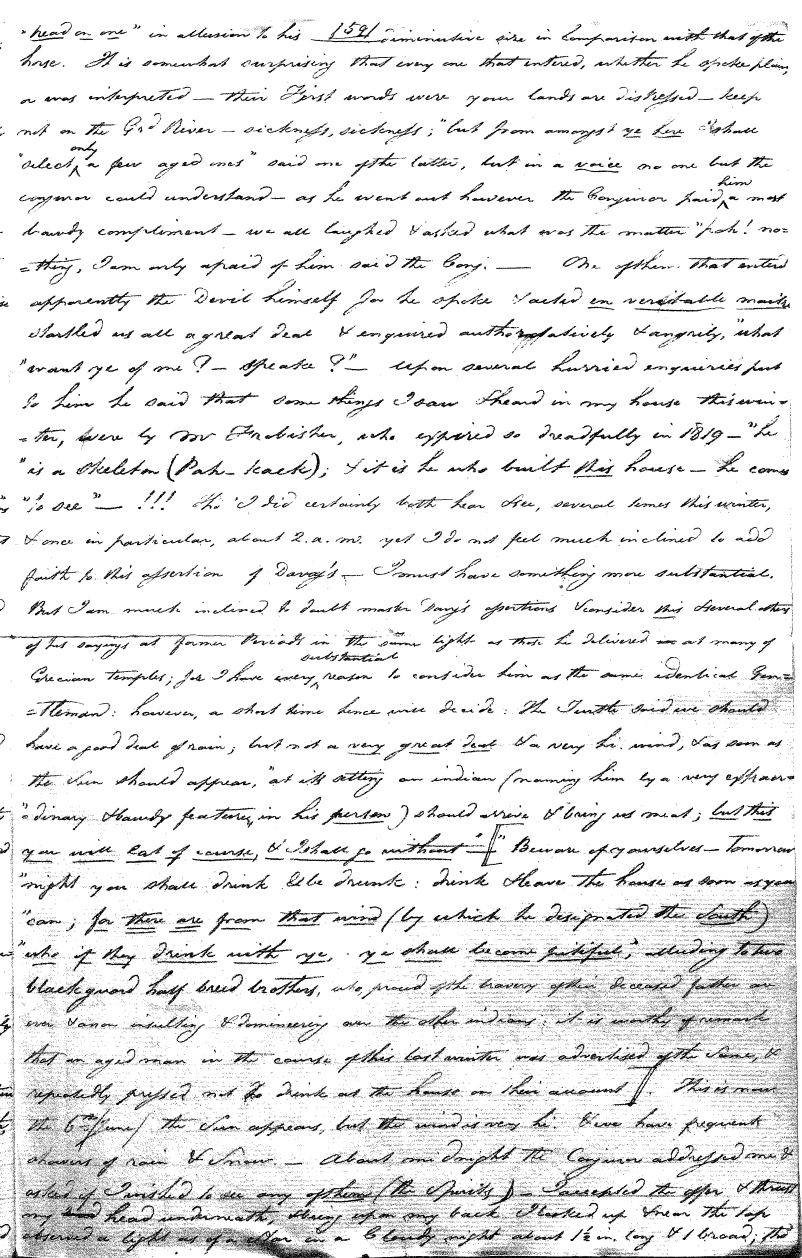 159
"head on one" in allusion to his diminutive size in comparison with that of the
horse. It is somewhat surprising that every one that entered, whether he spoke plain,
or was interpreted — their First words were your lands are distressed — keep
not on the Grd River — sickness, sickness; "but from amongst ye here I shall
"select only a few aged ones" said one of the latter, but in a voice no one but the
conjuror could understand — as he went out however the Conjuror paid him a most
bawdy compliment — we all laughed & asked what was the matter "poh! no=
=thing, I am only afraid of him said the Conj. — One of them that entered
apparently the Devil himself for he spoke & acted en veritable maitre
startled us all a great deal & enquired authoritatively & angrily, "what
"want ye of me? — speake?" — upon several hurried enquiries put
to him he said that some things I saw & heard in my house this win=
=ter, were by Mr Frobisher, who expired so dreadfully in 1819 — "he
"is a skeleton (Pah-kack); & it is he who built this house — he comes
"to see" — !!! Tho' I did certainly both hear & see, several times this winter,
& once in particular, about 2. a.m. yet I do not feel much inclined to add
faith to this assertion of Davy's — I must have something more substantial.
But I am much inclined to doubt master Davy's assertions & consider this & several others
of his sayings at former Periods in the same light as those he delivered at many of
Grecian temples; for I have every substantial reason to consider him as the same identical Gen=
=tleman: however, a short time hence will decide: The Turtle said we should
have a good deal of rain; but not a very great deal & a very hi. wind, & as soon as
the Sun should appear, "at its setting an indian (naming him by a very extraor=
"dinary & bawdy feature, in his person) should arrive & bring us meat; but this
you will Eat of course, & I shall go without" — [" Beware of yourselves — Tomorrow
"night you shall drink & be drunk: drink & leave the house as soon as you
"can; for there are from that wind (by which he designated the South)
"who if they drink with ye, ye shall become pitiful," alluding to two
blackguard half breed brothers, who, proud of the bravery of their deceased father are
ever & anon insulting & domineering over the other indians: it is worthy of remark
that an aged man in the course of this last winter was advertised of the same, &
repeatedly pressed not to drink at the house on their account]. This is now
the 6th (June) the Sun appears, but the wind is very hi. & we have frequent
showers of rain & Snow. — About midnight the Conjuror addressed me &
asked if I wished to see any of them (the Spirits) — I accepted the offer & thrust
my head underneath, & being upon my back I looked up & near the top
observed a light as of a Star in a Cloudy night about 1½ in. long & 1 broad; tho